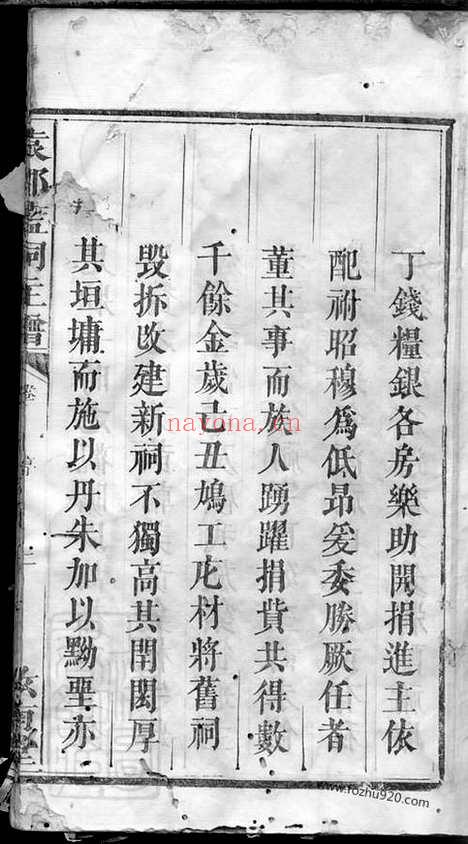 丁錢糧銀各房樂助開捐進主依
配祔昭穆爲低昂爰委勝厥任者
董其事而族人踴躍捐貲共得數
千餘金歲己丑鳩工庀材將舊祠
毀拆改建新祠不獨高其閈閎厚
其垣墉而施以丹朱加以黝堊亦
袁郡鑑祠主譜
卷
nayona.cn
www.fozhu920.com